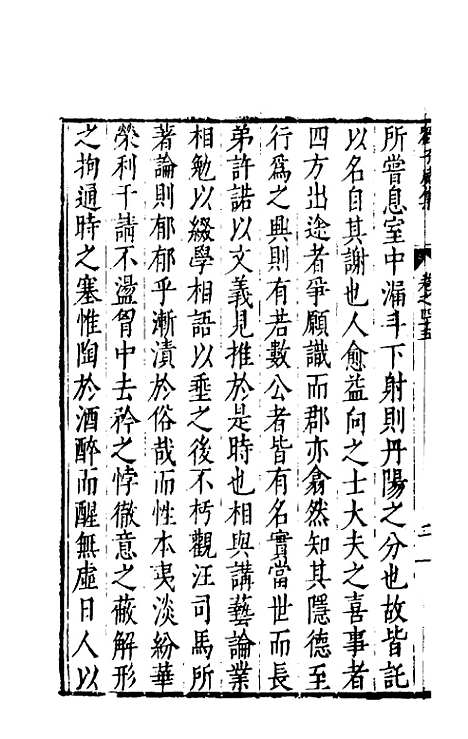 所嘗息室中漏斗下射則丹陽之分也故皆託
以名自其謝也人愈益向之士大夫之喜事者
四方出途者爭願識而郡亦翕然知其隱德至
行為之興則有若數公者皆有名實當世而長
弟許諾以文義見推於是時也相與講藝論業
相勉以綴學相語以垂之後不朽觀汪司馬所
著論則郁郁乎漸漬於俗哉而性本夷淡紛華
榮利干請不盪胷中去矜之悖徹意之蔽解形
之拘通時之塞惟陶於酒醉而醒無虛日人以